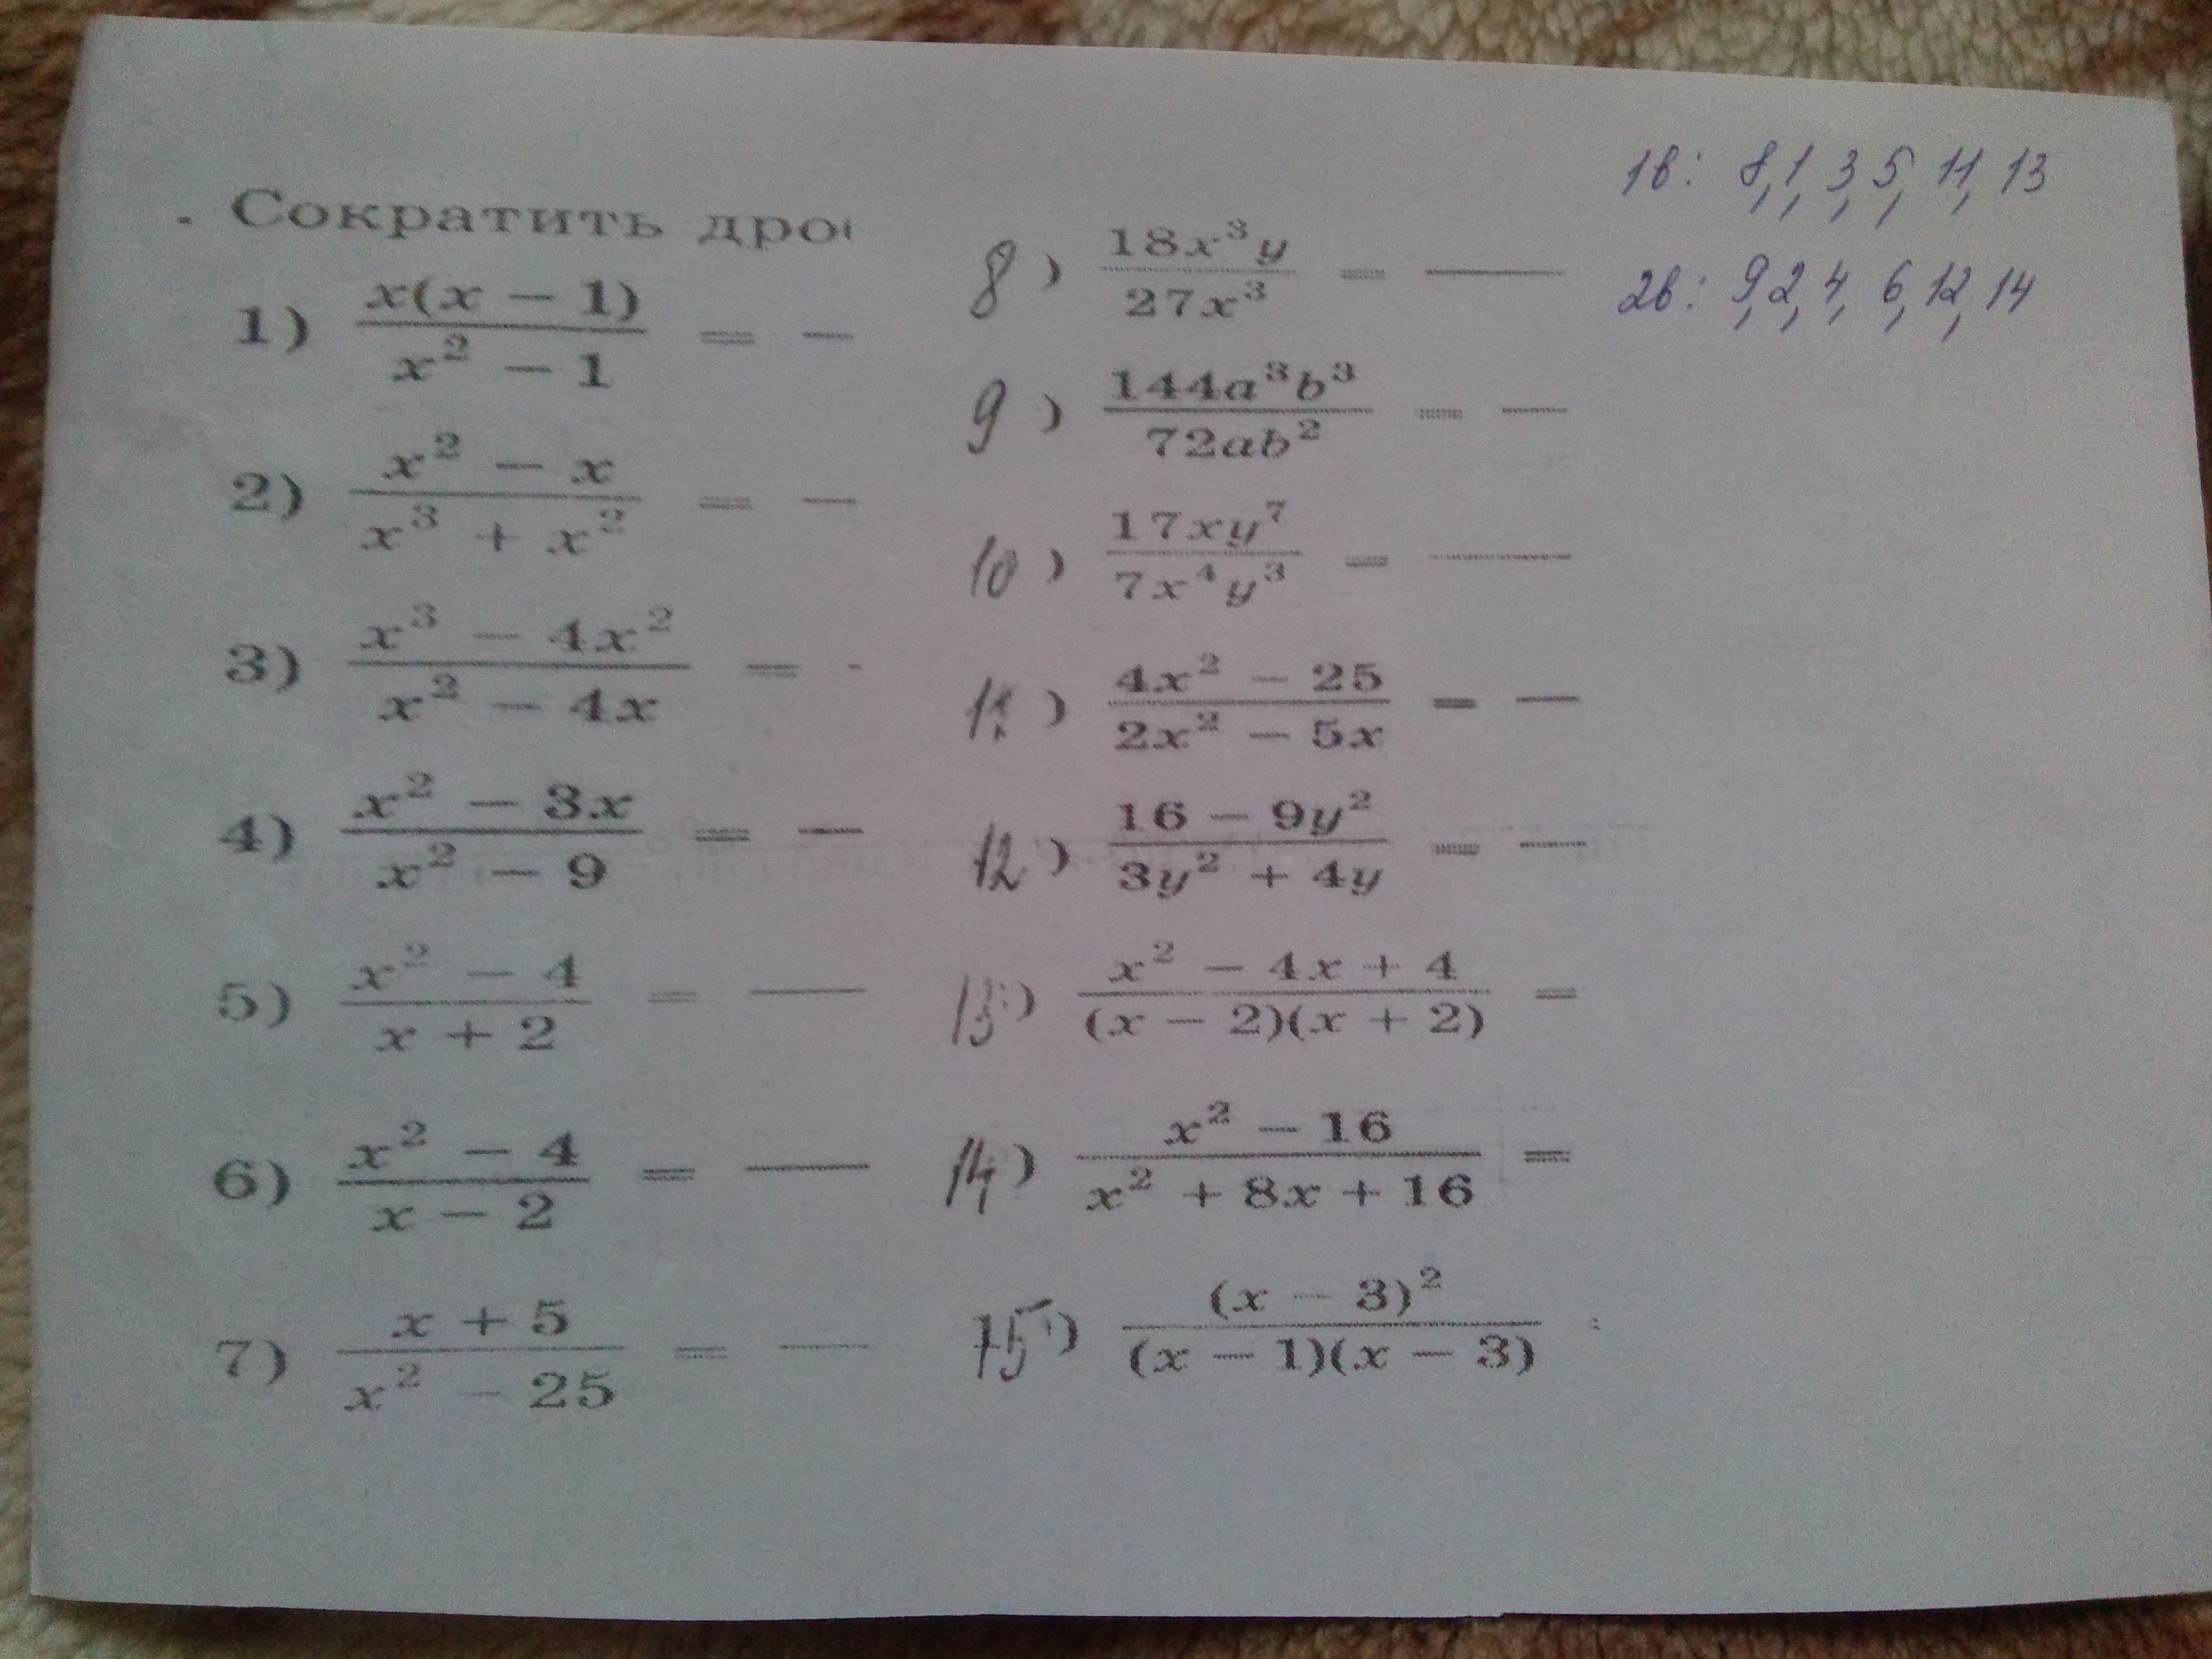 . Сократить
1) x(x − 1) / x² − 1 = —
2) x² − x / x³ + x² = —
3) x³ − 4x² / x² − 4x = -
4) x² − 3x / x² − 9 = —
5) x² − 4 / x + 2 = —
6) x² − 4 / x − 2 = —
7) x + 5 / x² − 25 = —
8) 18x³y / 27x³ = —
9) 144a³b³ / 72ab² = —
10) 17xy⁷ / 7x⁴y³ = —
11) 4x² − 25 / 2x² − 5x = —
12) 16 − 9y² / 3y² + 4y = —
13) x² − 4x + 4 / (x − 2)(x + 2) =
14) x² − 16 / x² + 8x + 16 =
15) (x − 3)² / (x − 1)(x − 3)
1в: 8, 1, 3, 5, 11, 13
2в: 9, 2, 4, 6, 12, 14